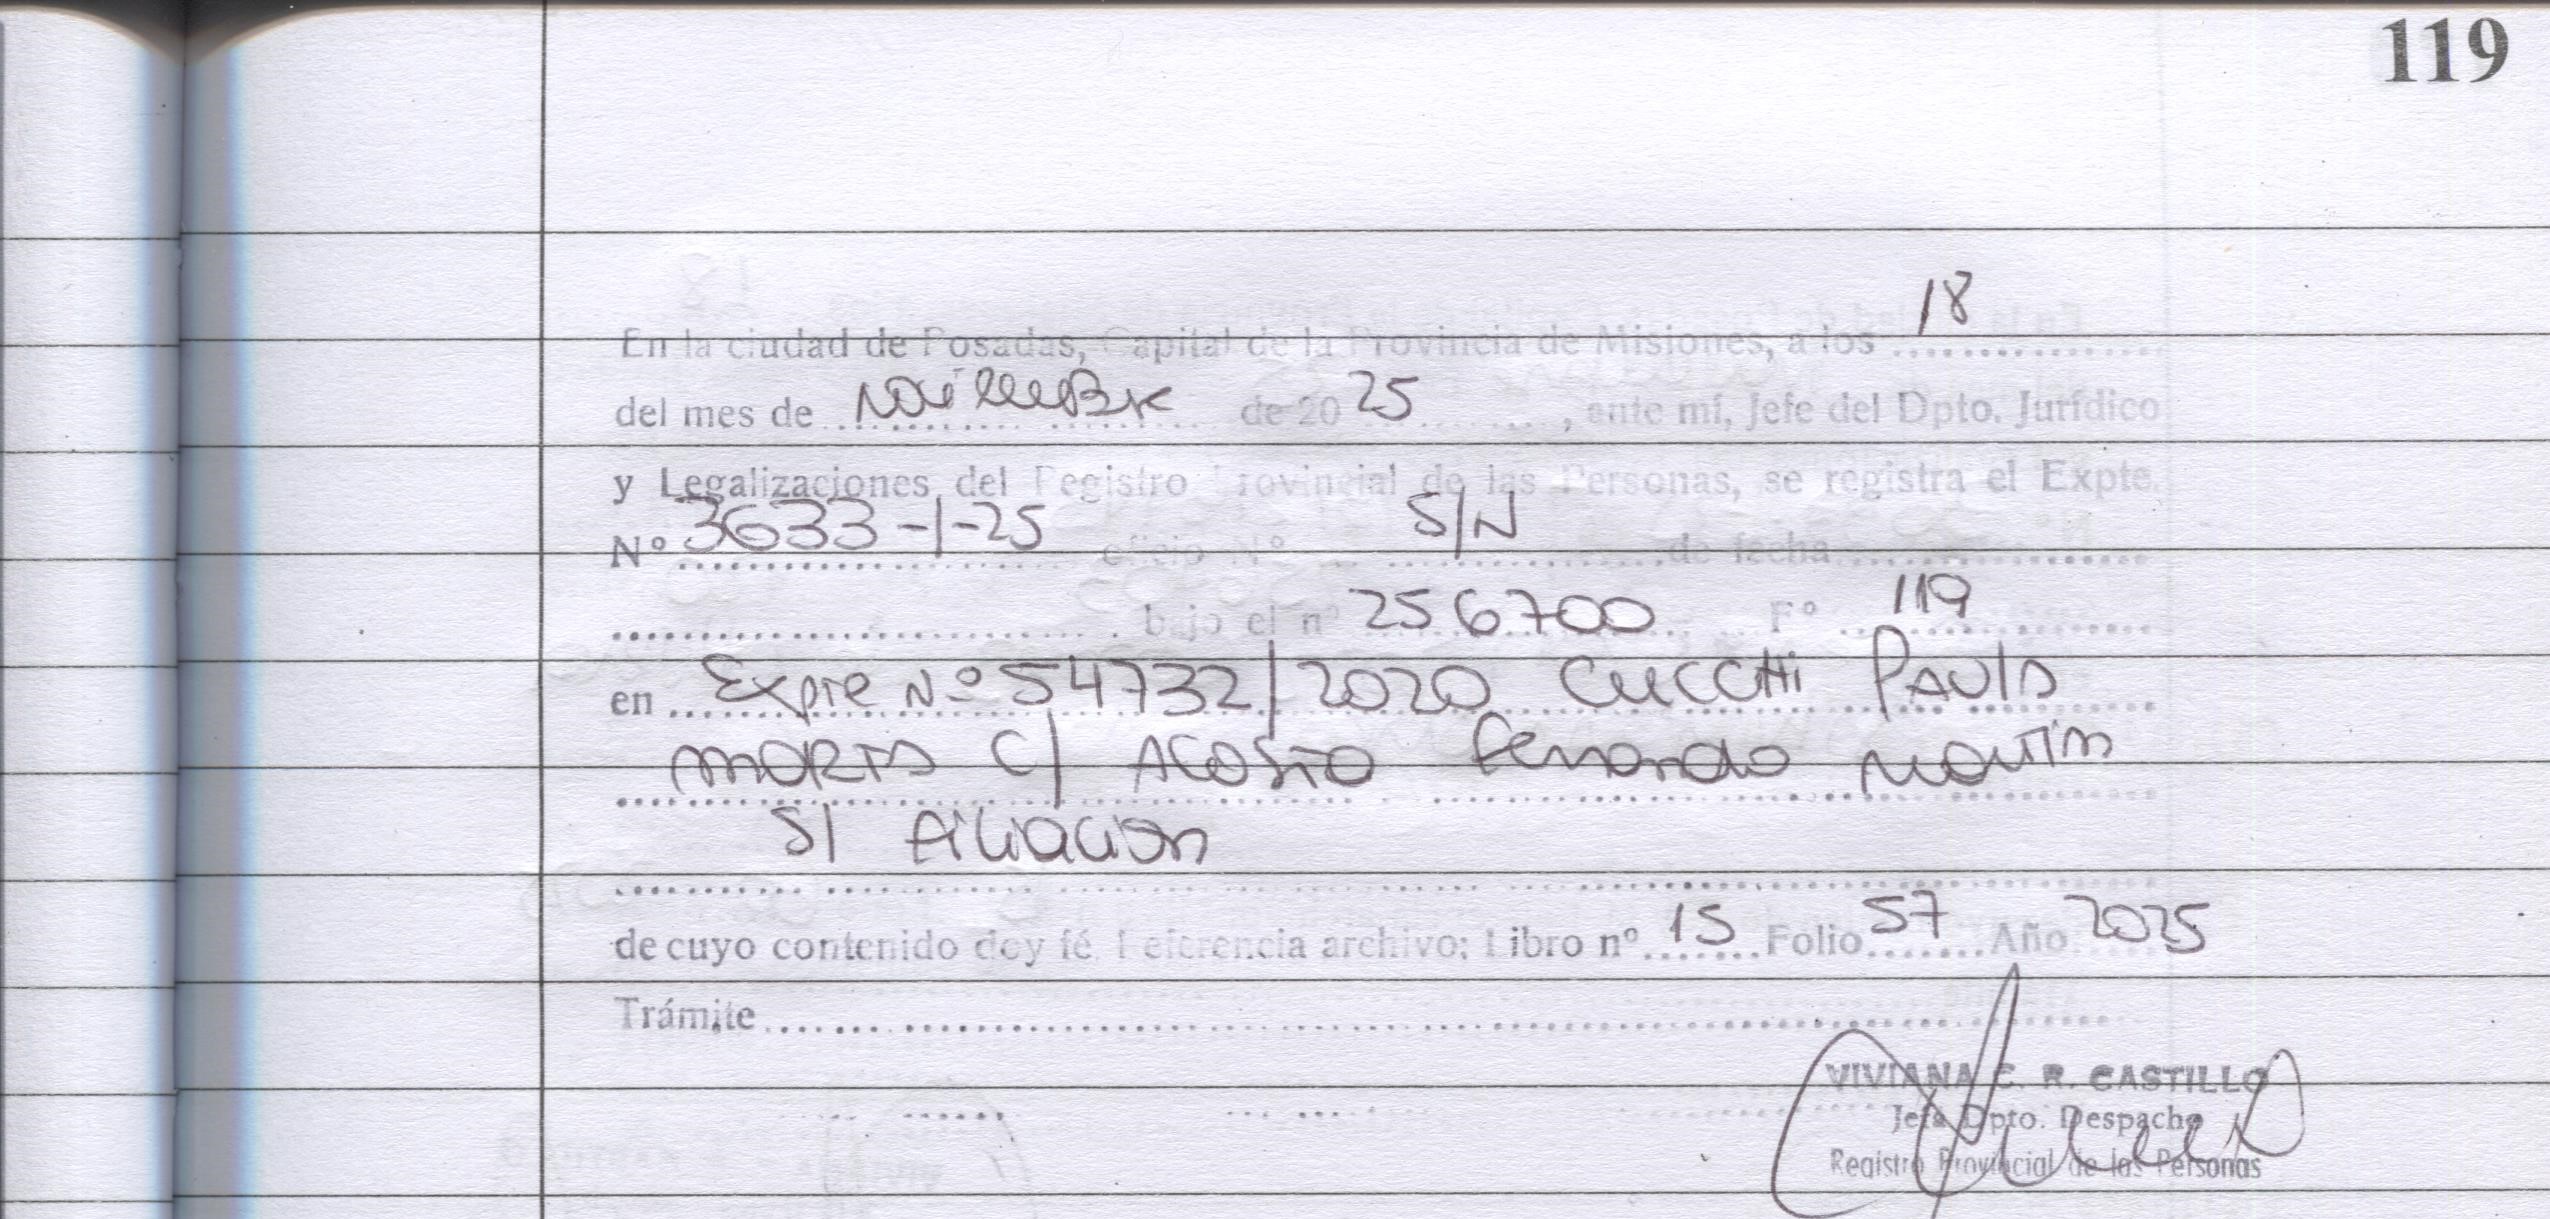 119
En la ciudad de Posadas, Capital de la Provincia de Misiones, a los 18
del mes de Noviembre de 20 25, ante mí, Jefe del Dpto. Jurídico
y Legalizaciones del Registro Provincial de las Personas, se registra el Expte.
Nº 3633-1-25 oficio Nº S/N de fecha
bajo el nº 256700 Fº 119
en Expte Nº 54732/2020 CUCCHI PAULA
MARTA C/ ACOSTA Fernando Martin
S/ Filiacion
de cuyo contenido doy fé. Referencia archivo; Libro nº 15 Folio 57 Año 2025
Trámite
VIVIANA C. R. CASTILLO
Jefa Dpto. Despacho
Registro Provincial de las Personas